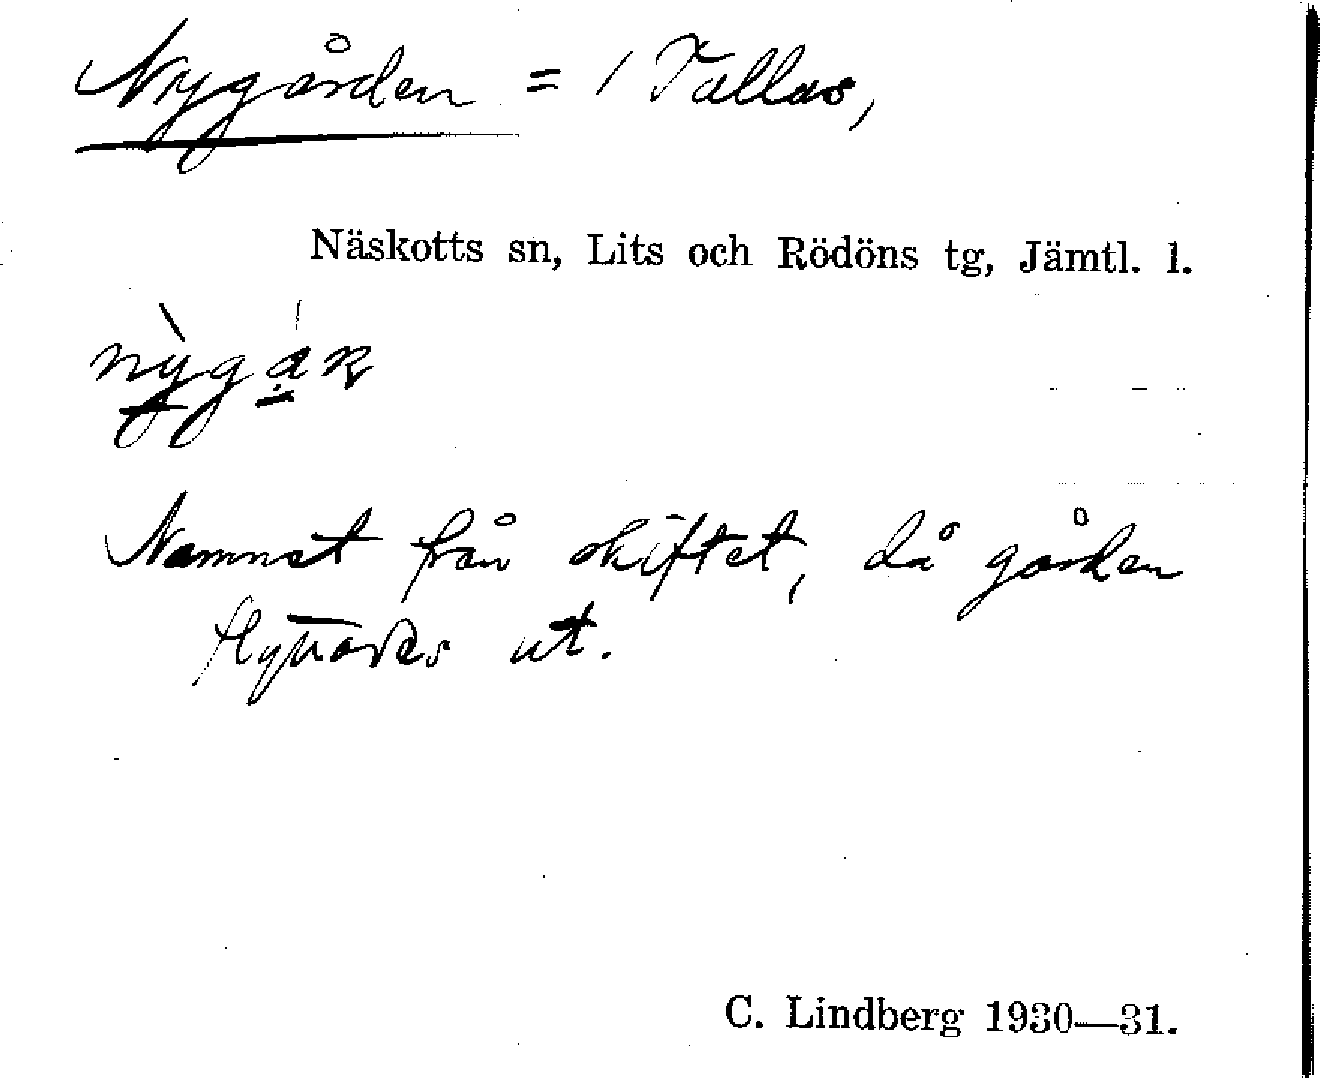 Nygården = 1 Tallås,
Näskotts sn, Lits och Rödöns tg, Jämtl. l.
Namnet från skiftet, då gården
flyttades ut.
C. Lindberg 1930—31.